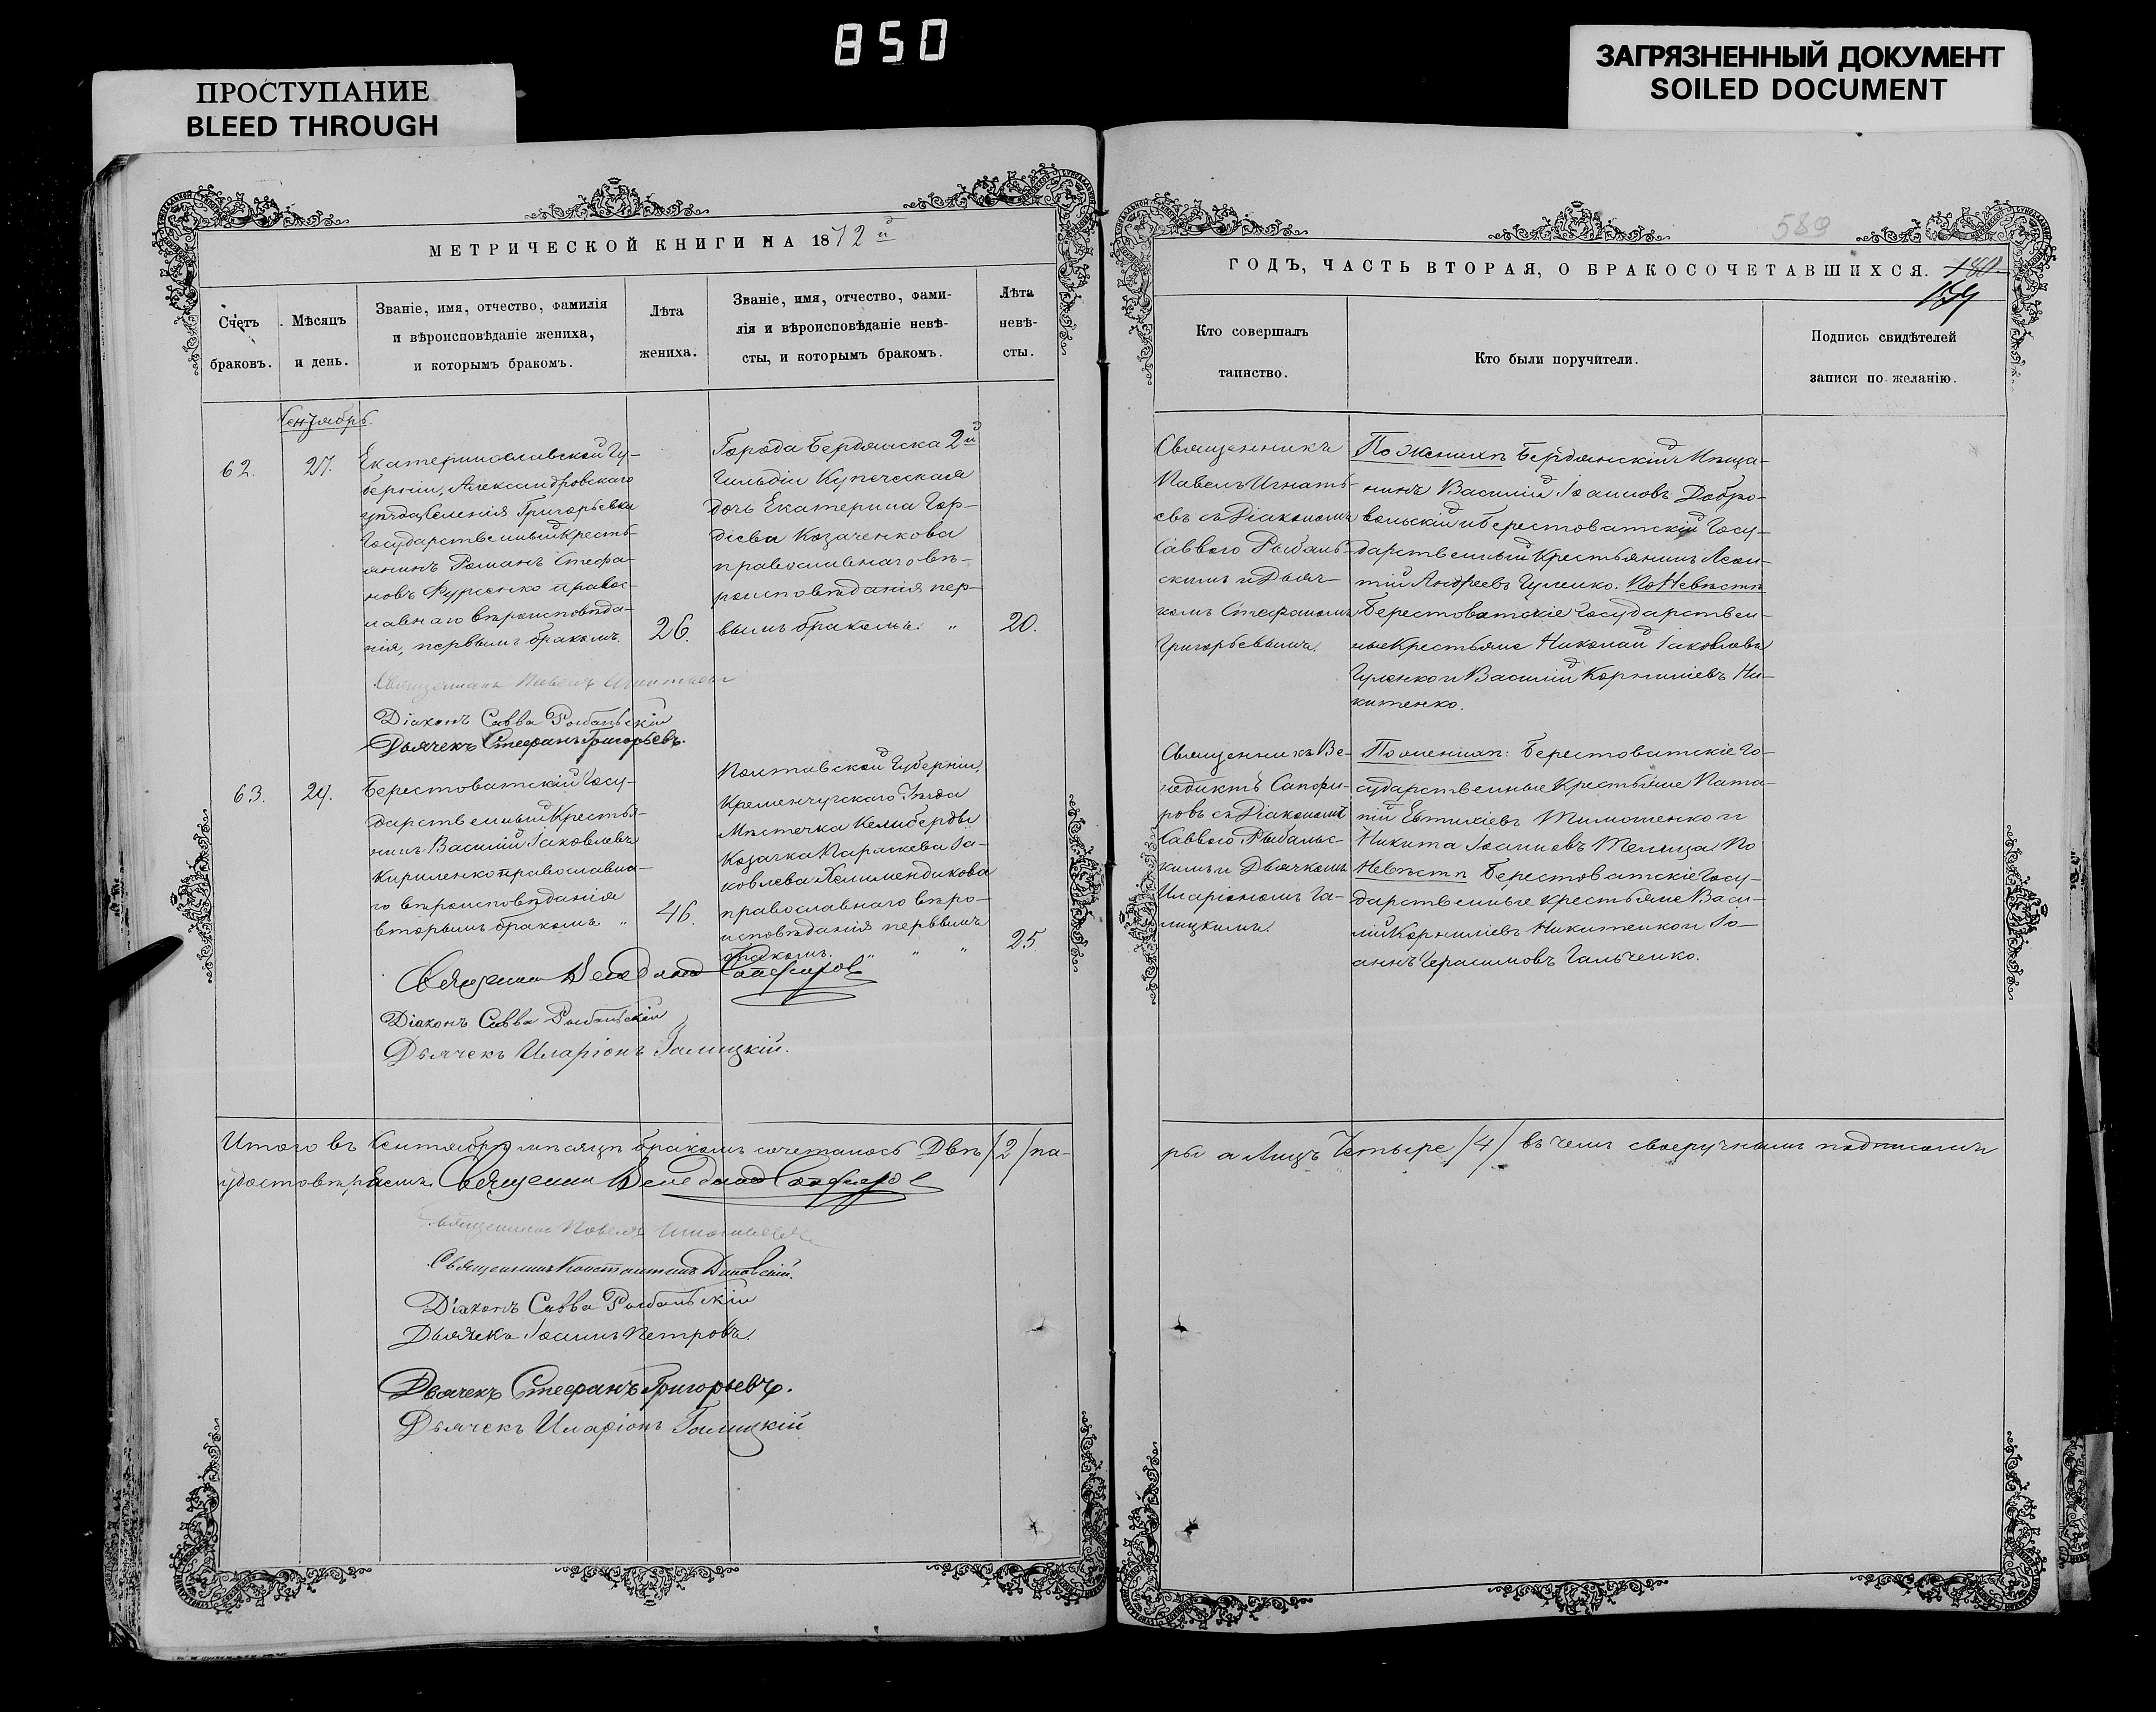 850
ПРОСТУПАНИЕ
BLEED THROUGH
ЗАГРЯЗНЕННЫЙ ДОКУМЕНТ
SOILED DOCUMENT
МЕТРИЧЕСКОЙ КНИГИ НА 1872й
Счетъ браковъ.
Мѣсяцъ и день.
Званіе, имя, отчество, фамилія
и вѣроисповѣданіе жениха,
и которымъ бракомъ.
Лѣта
жениха.
Званіе, имя, отчество, фами-
лія и вѣроисповѣданіе невѣ-
сты, и которымъ бракомъ.
Лѣта
невѣ-
сты.
Сентябрь.
62.
27.
Екатеринославской Гу-
берніи, Александровскаго
уѣзда, Селенія Григорьевки
Государственный Кресть-
янинъ Романъ Стефа-
новъ Фурсенко правос-
лавнаго вѣроисповѣда-
нія, первымъ бракомъ.
26.
Города Бердянска 2й
Гильдіи Купеческая
дочь Екатерина Гор-
діева Козаченкова
православнаго вѣ-
роисповѣданія пер-
вымъ бракомъ. „
20.
Священникъ Павелъ Игнатьевъ
Діаконъ Савва Рыбальскій
Дьячекъ Стефанъ Григорьевъ.
63.
29.
Берестоватскій Госу-
дарственный Крестья-
нинъ Василій Іаковлевъ
Кириленко православна-
го вѣроисповѣданія
вторымъ бракомъ „
46.
Полтавской Губерніи,
Кременчугскаго Уѣзда
Мѣстечка Келиберды
Козачка Параскева Іа-
ковлева
православнаго вѣро-
исповѣданія первымъ
бракомъ. „ „ „
25.
Священникъ Венедиктъ Сапфировъ
Діаконъ Савва Рыбальскій
Дьячекъ Иларіонъ Галицкій.
Итого въ Сентябрѣ мѣсяцѣ бракомъ сочеталось Двѣ /2/ па-
удостовѣряемъ. Священникъ Венедиктъ Сапфировъ
Священникъ Павелъ Игнатьевъ
Священникъ Константинъ
Діаконъ Савва Рыбальскій
Дьячекъ Іоаннъ Петровъ.
Дьячекъ Стефанъ Григорьевъ.
Дьячекъ Иларіонъ Галицкій
589
ГОДЪ, ЧАСТЬ ВТОРАЯ, О БРАКОСОЧЕТАВШИХСЯ.
Кто совершалъ
таинство.
Кто были поручители.
Подпись свидѣтелей
записи по желанію.
Священникъ
Павелъ Игнать-
евъ съ Діакономъ
Саввою Рыбаль-
скимъ и Дьяч-
комъ Стефаномъ
Григорьевымъ.
По Женихѣ Бердянскій Мѣща-
нинъ Василій Іоанновъ Добро-
вольскій и Берестоватскій Госу-
дарственный Крестьянинъ Леон-
тій Андреевъ Гуленко. По Невѣстѣ
Берестоватскіе Государствен-
ные Крестьяне Николай Іаковлевъ
Гуленко и Василій Корниліевъ Ни-
китенко.
Священникъ Ве-
недиктъ Сапфи-
ровъ съ Діакономъ
Саввою Рыбальс-
кимъ и Дьячкомъ
Иларіономъ Га-
лицкимъ.
По женихѣ: Берестоватскіе Го-
сударственные Крестьяне Пата-
пій Евтихіевъ Тимошенко и
Никита Іоанновъ Телица. По
Невѣстѣ Берестоватскіе Госу-
дарственные Крестьяне Васи-
лій Корниліевъ Никитенко и Іо-
аннъ Герасимовъ Гальченко.
ры а лицъ Четыре /4/ въ чемъ своеручнымъ подписомъ